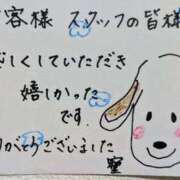 客様 スタッフの皆様
しくしていただき
嬉しかった
です。
がとうございました